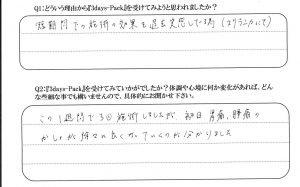 Q1:どういう理由から『3days-Pack』を受けてみようと思われましたか?
短期間での施術の効果を過去実感している為
Q2:『3days-Pack』を受けてみていかがでしたか?体調や心境に何か変化があれば、どん
な些細な事でも構いませんので、具体的にお聞かせ下さい。
この1週間で3回施術しましたが、初日 肩痛、腰痛の
が徐々に良くなっていくのが分かりました